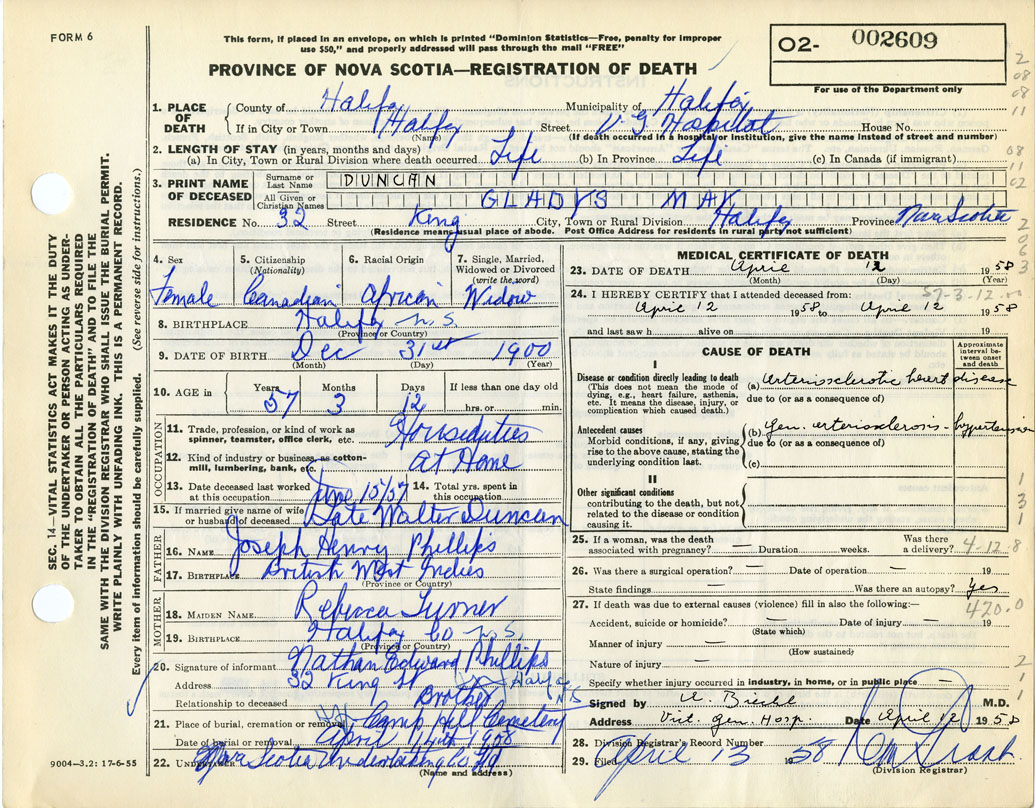 FORM 6
This form, if placed in an envelope, on which is printed "Dominion Statistics—Free, penalty for improper
use $50," and properly addressed will pass through the mail "FREE"
PROVINCE OF NOVA SCOTIA—REGISTRATION OF DEATH
O2- 002609
For use of the Department only
SEC. 14—VITAL STATISTICS ACT MAKES IT THE DUTY
OF THE UNDERTAKER OR PERSON ACTING AS UNDER-
TAKER TO OBTAIN ALL THE PARTICULARS REQUIRED
IN THE "REGISTRATION OF DEATH" AND TO FILE THE
SAME WITH THE DIVISION REGISTRAR WHO SHALL ISSUE THE BURIAL PERMIT.
WRITE PLAINLY WITH UNFADING INK. THIS IS A PERMANENT RECORD.
Every item of information should be carefully supplied. (See reverse side for instructions.)
1. PLACE OF DEATH
County of Halifax Municipality of Halifax
If in City or Town Halifax Street V G Hospital House No.
(Name) (If death occurred in a hospital or institution, give the name instead of street and number)
2. LENGTH OF STAY (in years, months and days)
(a) In City, Town or Rural Division where death occurred Life (b) In Province Life (c) In Canada (if immigrant)
3. PRINT NAME OF DECEASED
Surname or Last Name DUNCAN
All Given or Christian Names GLADYS MAY
RESIDENCE No. 32 Street King City, Town or Rural Division Halifax Province Nova Scotia
(Residence means usual place of abode. Post Office Address for residents in rural party not sufficient)
4. Sex Female
5. Citizenship (Nationality) Canadian
6. Racial Origin African
7. Single, Married, Widowed or Divorced (write the word) Widow
8. BIRTHPLACE Halifax N.S.
(Province or Country)
9. DATE OF BIRTH Dec 31st 1900
(Month) (Day) (Year)
10. AGE in Years 57 Months 3 Days 12 If less than one day old
hrs. or min.
OCCUPATION
11. Trade, profession, or kind of work as
spinner, teamster, office clerk, etc. Houseduties
12. Kind of industry or business, as cotton-
mill, lumbering, bank, etc. At Home
13. Date deceased last worked
at this occupation June 15/57
14. Total yrs. spent in
this occupation
15. If married give name of wife
or husband of deceased Late Walter Duncan
FATHER
16. NAME Joseph Henry Phillips
17. BIRTHPLACE British West Indies
(Province or Country)
MOTHER
18. MAIDEN NAME Rebecca Turner
19. BIRTHPLACE Halifax Co N.S.
(Province or Country)
20. Signature of informant Nathan Edward Phillips
Address 32 King St Halifax N S
Relationship to deceased Brother
21. Place of burial, cremation or removal Camp Hill Cemetery
Date of burial or removal April 14th 1958
22. UNDERTAKER Nova Scotia Undertaking Co Ltd
(Name and address)
9004—3.2: 17-6-55
MEDICAL CERTIFICATE OF DEATH
23. DATE OF DEATH April 12 1958
(Month) (Day) (Year)
57-3-12
24. I HEREBY CERTIFY that I attended deceased from:
April 12 1958 to April 12 1958
and last saw h alive on 19
CAUSE OF DEATH
Approximate interval between onset and death
I
Disease or condition directly leading to death
(This does not mean the mode of
dying, e.g., heart failure, asthenia,
etc. It means the disease, injury, or
complication which caused death.)
(a) Arteriosclerotic heart disease
due to (or as a consequence of)
Antecedent causes
Morbid conditions, if any, giving
rise to the above cause, stating the
underlying condition last.
(b) Gen. arteriosclerosis - hypertension
due to (or as a consequence of)
(c)
II
Other significant conditions
contributing to the death, but not
related to the disease or condition
causing it.
25. If a woman, was the death
associated with pregnancy? — Duration weeks. Was there
a delivery?
4-12-8
26. Was there a surgical operation? — Date of operation — 19
State findings Was there an autopsy? Yes
27. If death was due to external causes (violence) fill in also the following:—
420.0
Accident, suicide or homicide? — Date of injury — 19
(State which)
Manner of injury —
(How sustained)
Nature of injury —
Specify whether injury occurred in industry, in home, or in public place —
Signed by M.D.
Address Vict. Gen. Hosp. Date April 12 1958
28. Division Registrar's Record Number
29. Filed April 13 1958
(Division Registrar)